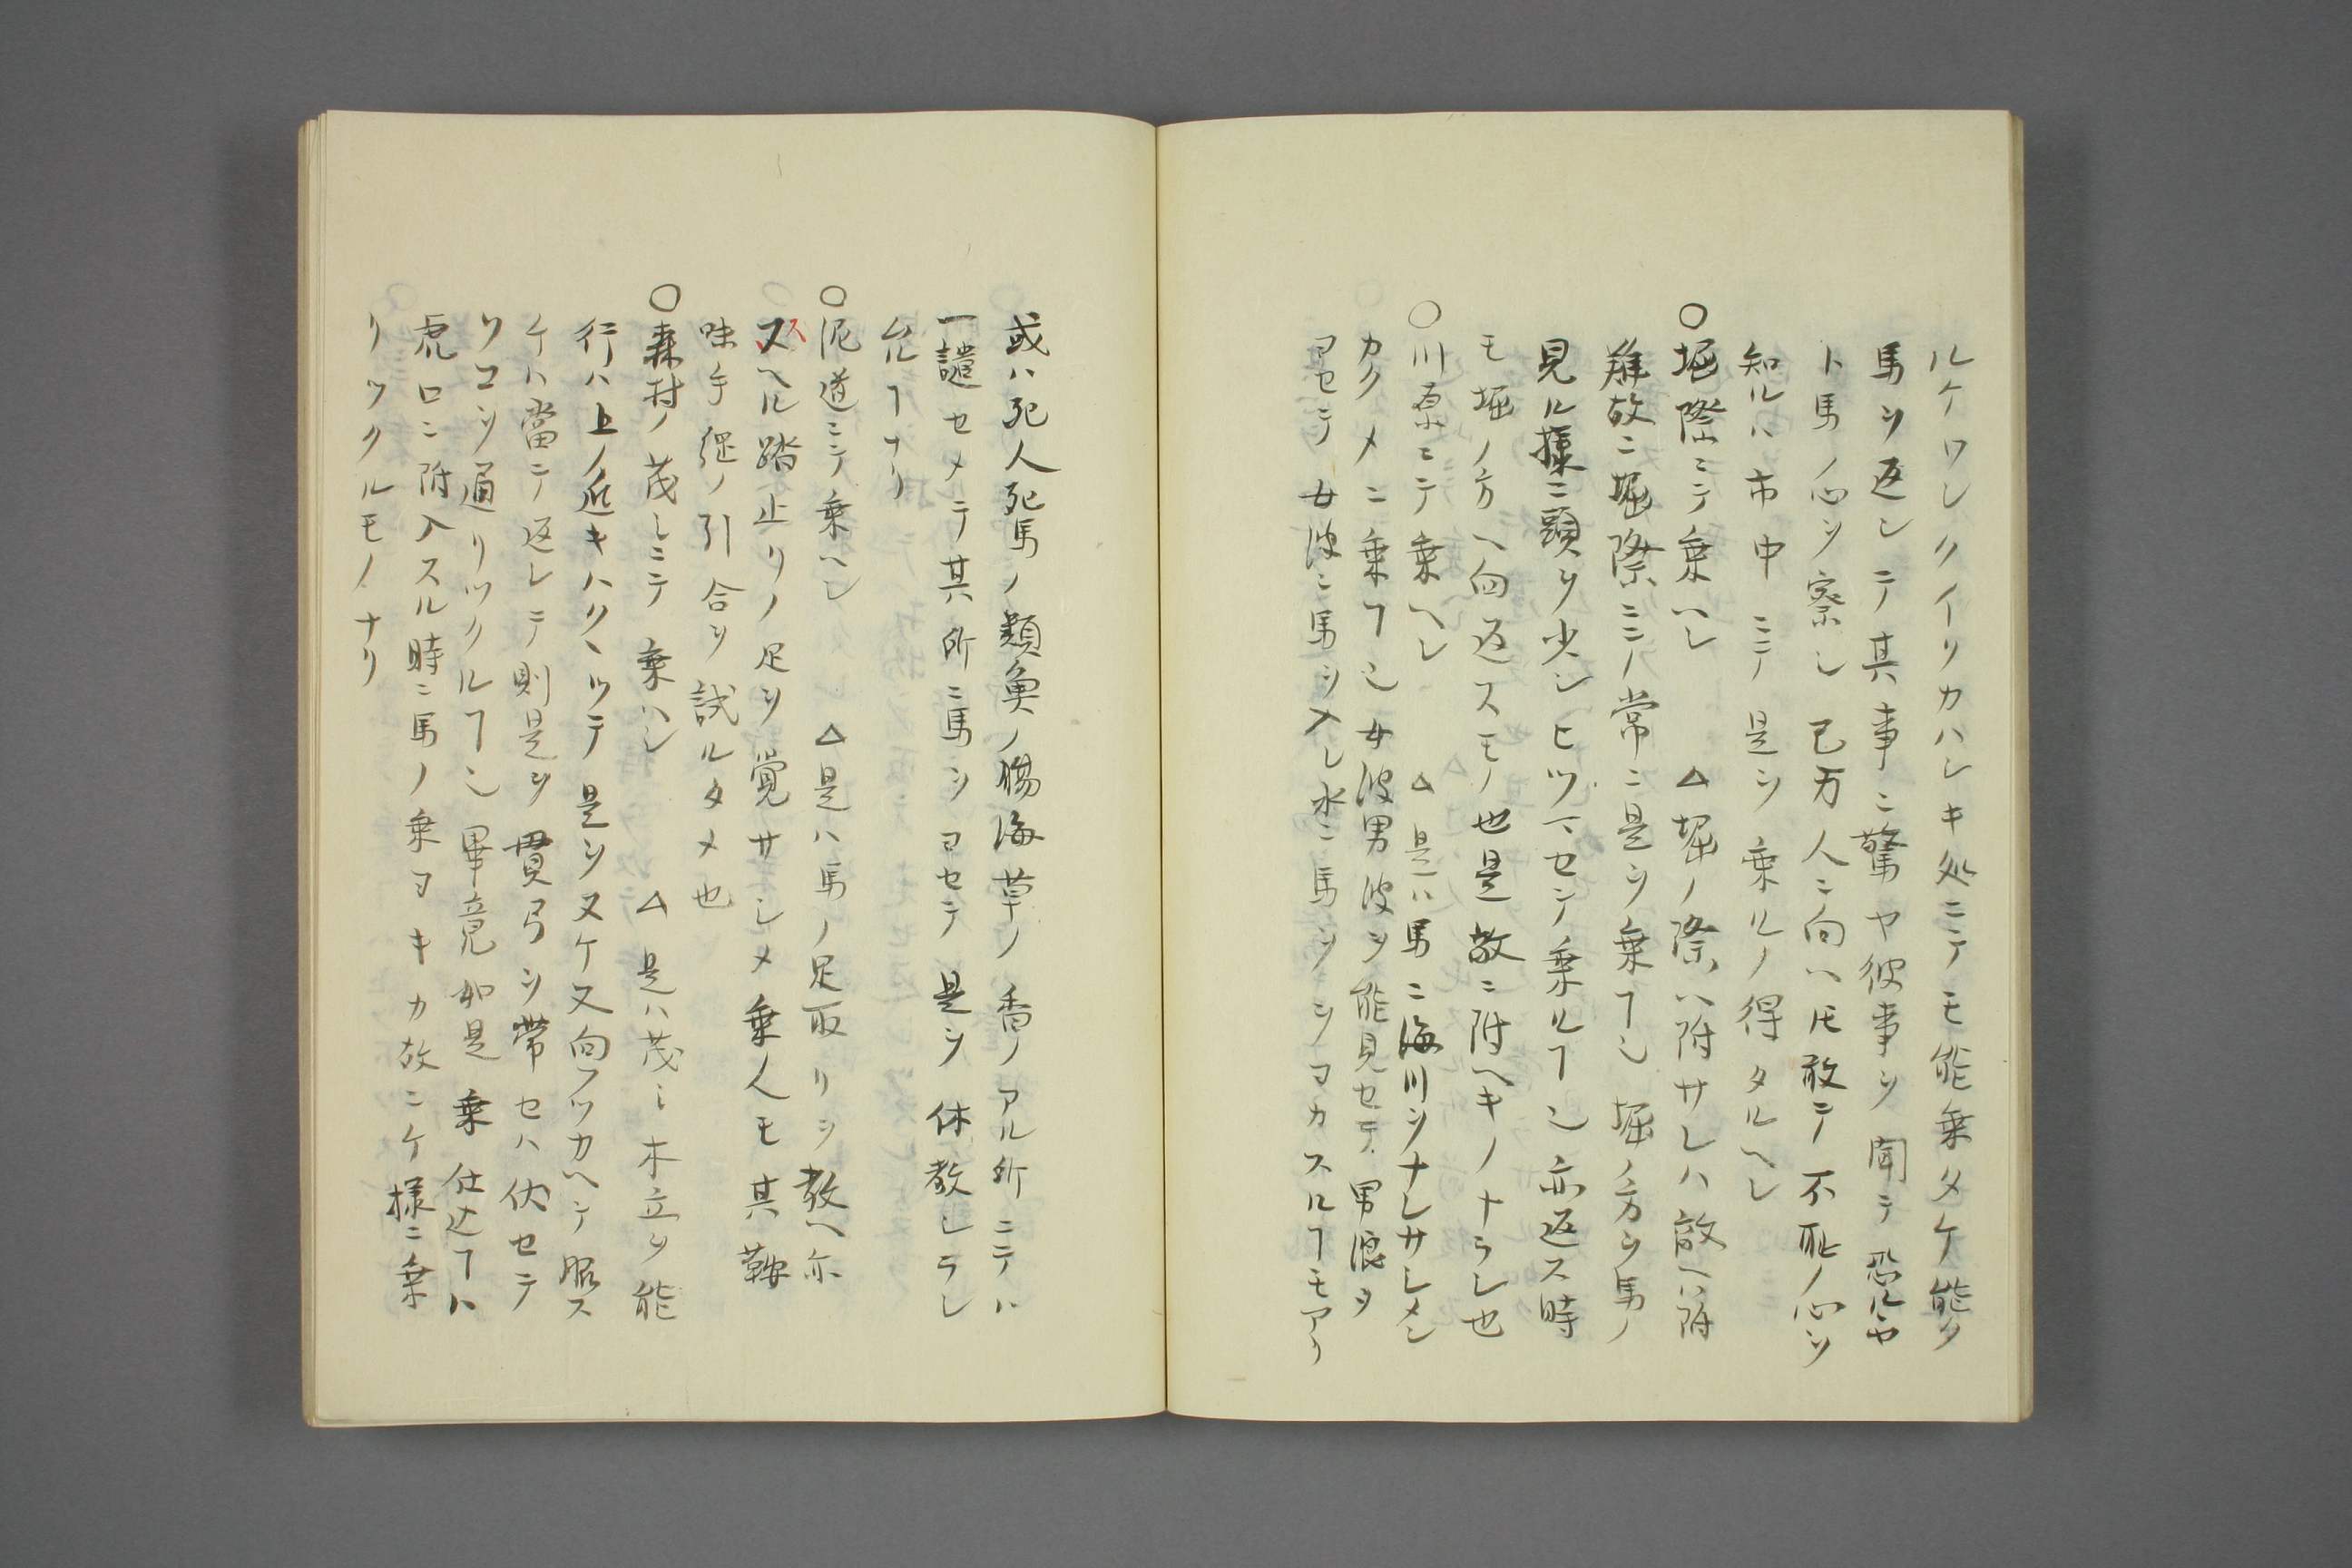 ルケワシクイリカハシキ処ニテモ能乗タケ能ク
馬ヲ返シテ其事ニ驚ヤ彼事ヲ聞テ恐ルヤ
ト馬ノ心ヲ察シ己万人ニ向ヘ𪜈敢テ不恥ノ心ヲ
知ルハ市中ニテ是ヲ乗ルノ得タルヘシ
○堀際ニテ乗ヘシ △堀ノ際ハ附サレハ敵ヘハ附
難故ニ堀際ニテ常ニ是ヲ乗ヿ也堀ノ方ヲ馬ノ
見ル様ニ頭ヲ少シヒツマセテ乗ルヿ也亦返ス時
モ堀ノ方ヘ向返スモノ也是敵ニ附ヘキノナラシ也
○川原ニテ乗ヘシ △是ハ馬ニ海川ヲナレサシメン
カタメニ乗ヿ也女波男波ヲ能見セテ男浪タ
ヨセテ女波ニ馬ヲ入レ水ニ馬ヲシマカスルヿモアリ
或ハ死人死馬ノ類魚ノ腸海草ノ香ノアル所ニテハ
一譴セメテ其所ニ馬ヲヨセテ是ヲ休教シラシ
ムルヿナリ
○泥道ニテ乗ヘシ △是ハ馬ノ足取リヲ教ヘ亦
スヘル踏止リノ足ヲ覚サシメ乗人モ其鞍
味手縄ノ引合ヲ試ルタメ也
○森村ノ茂ミニテ乗ヘシ △是ハ茂ミ木立ヲ能
行ハ上ノ近キハクヽツテ是ヲヌケ又向フツカヘテ服ス
ケハ當テ返シテ則是ヲ貫弓ヲ帯セハ伏セテ
ソコヲ通リツクルヿ也畢竟如是乗仕込ヿハ
虎口ニ附入スル時ニ馬ノ乗ヨキカ故ニケ様ニ乗
リツクルモノナリ